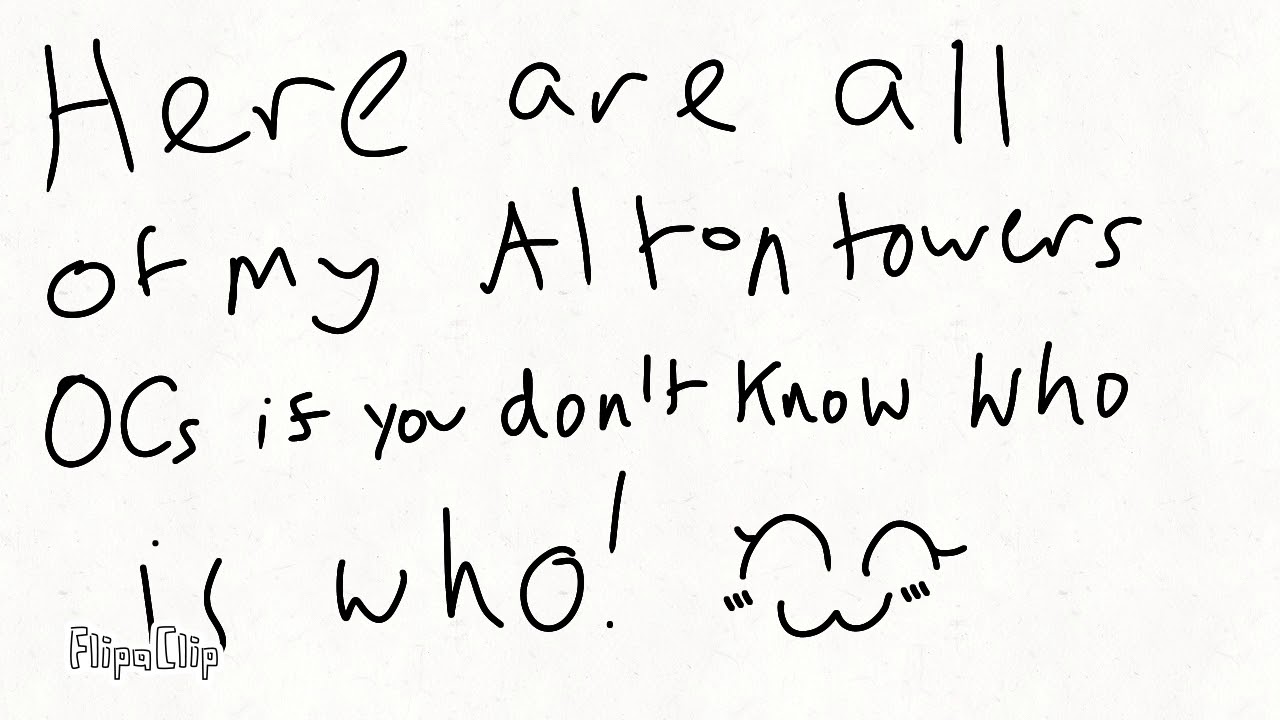 Here are all
of my Alton towers
OCs if you don't know who
is who!
FlipaClip